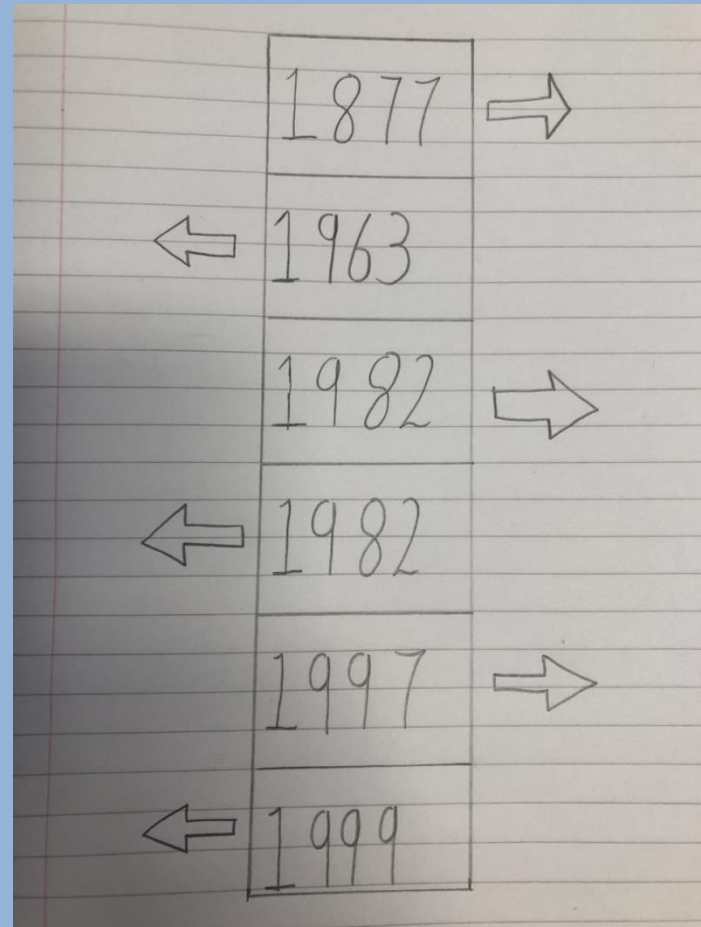 1877
1963
1982
1982
1997
1999